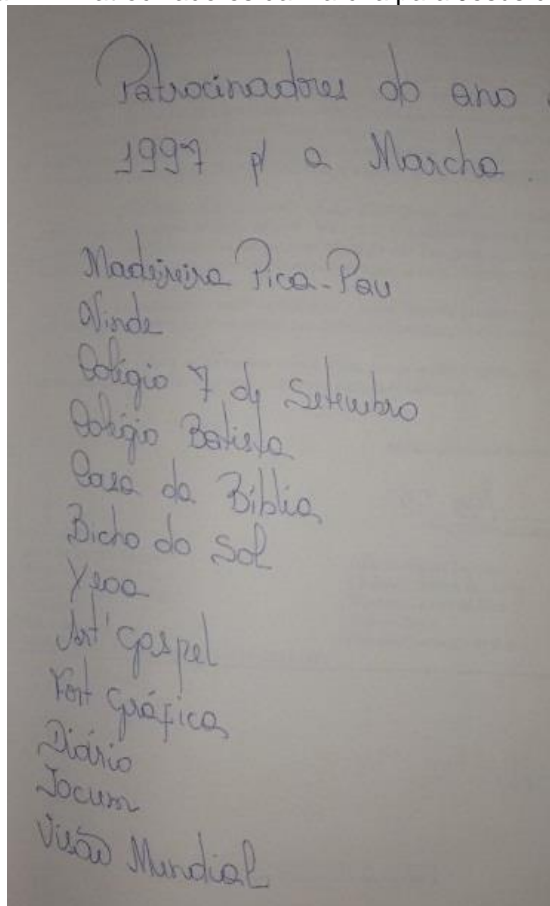 Patrocinadores do ano
1997 p/ a Marcha.
Madeireira Pica-Pau
Vinde
Colégio 7 de Setembro
Colégio Batista
Casa da Bíblia
Bicho do Sol
Art' Gospel
Fort Gráfica
Diário
Jocum
Visão Mundial